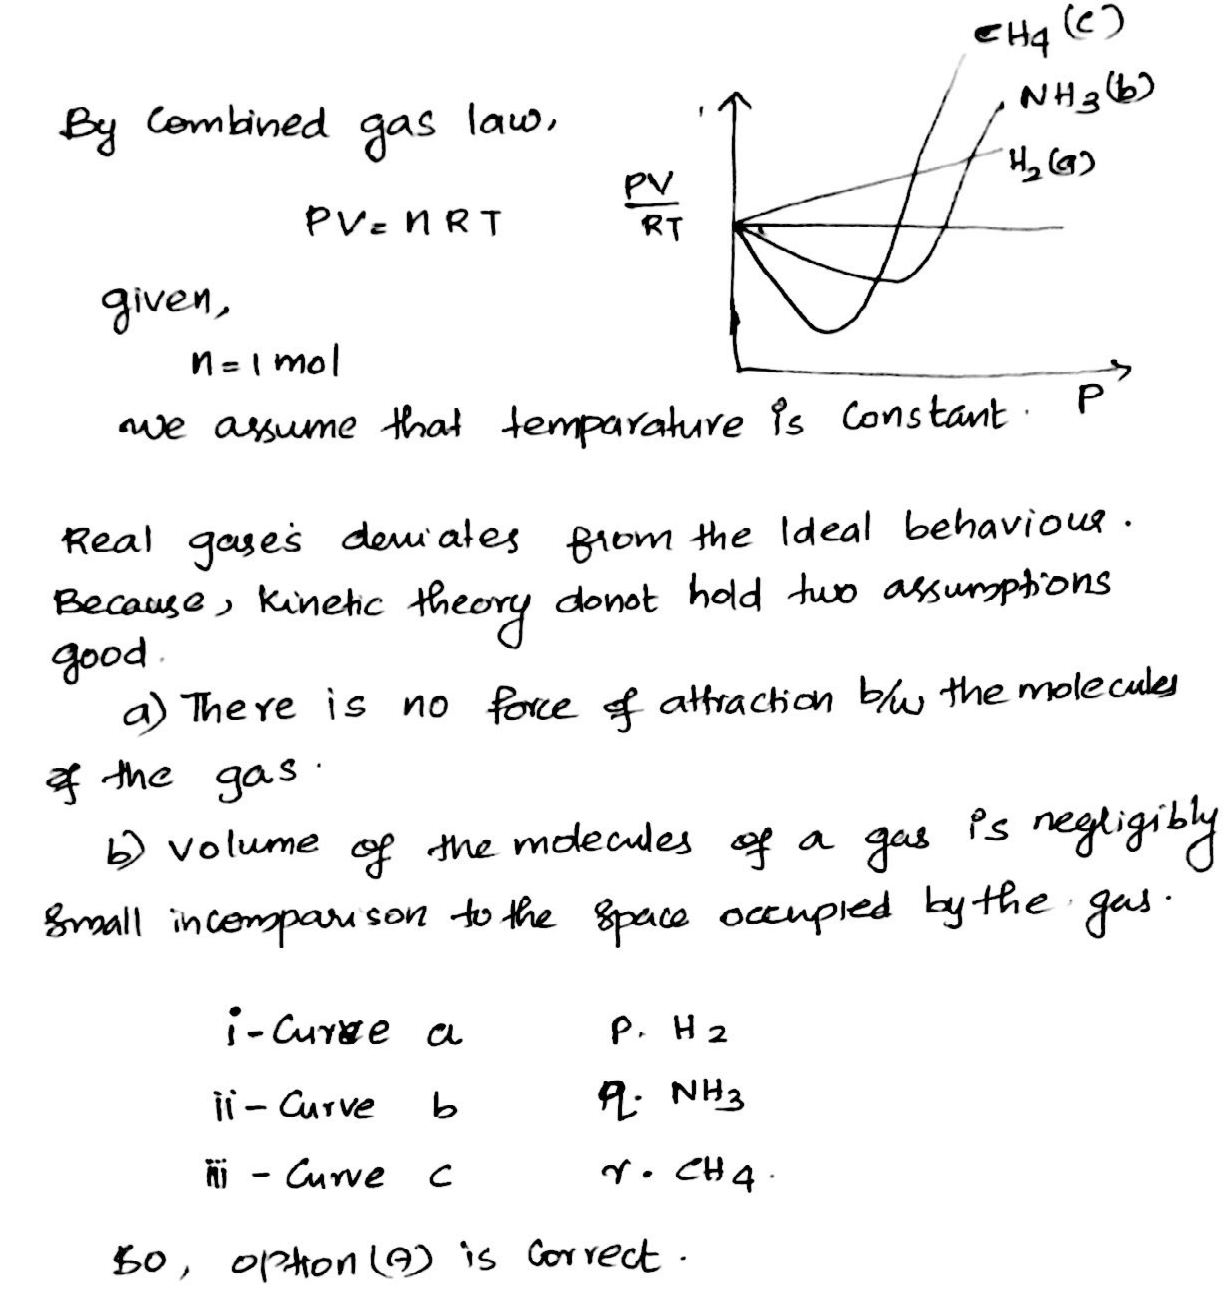 CH4 (c)
NH3 (b)
By Combined gas law,
H2 (a)
PV
RT
PV = nRT
given,
n = 1 mol
P
we assume that temparature is constant.
Real gases deviates from the Ideal behaviour.
Because, Kinetic theory donot hold two assumptions
good.
a) There is no force of attraction b/w the molecules
of the gas.
b) volume of the molecules of a gas is negligibly
small incomparison to the space occupied by the gas.
i - Curve a P. H2
ii - Curve b q. NH3
iii - Curve c r. CH4.
So, option (A) is correct.